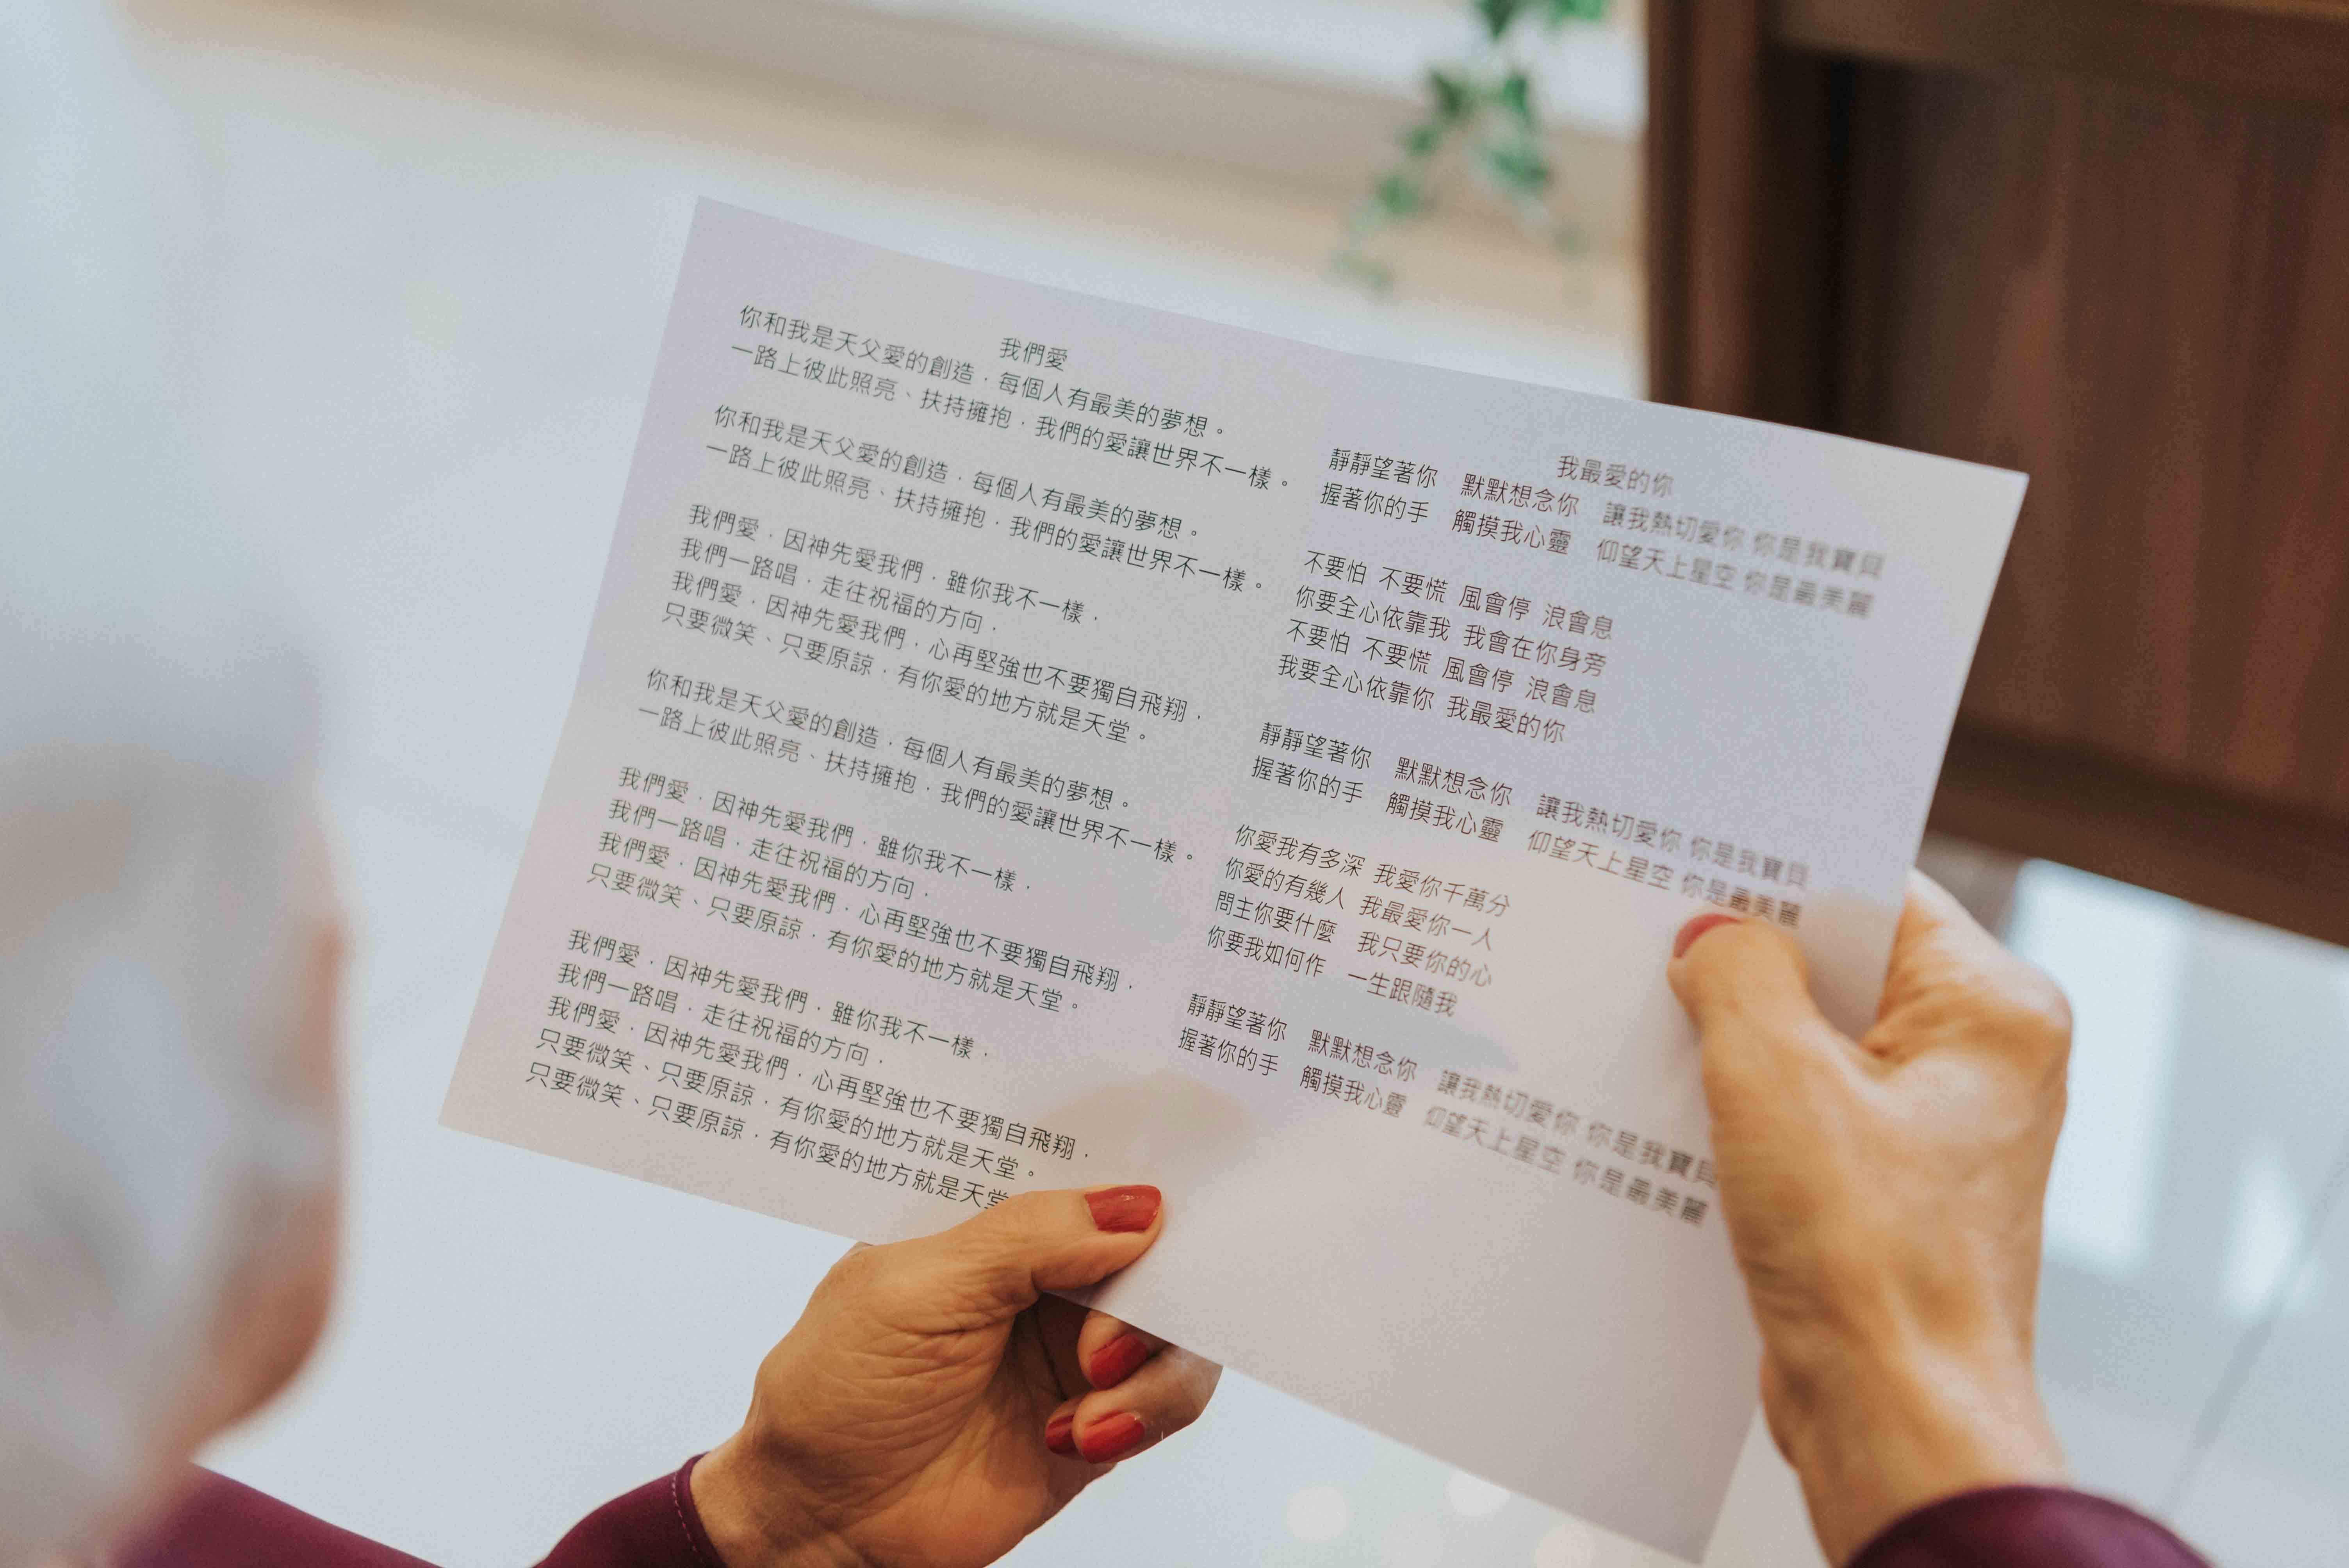 我們愛
你和我是天父愛的創造．每個人有最美的夢想。
一路上彼此照亮、扶持擁抱．我們的愛讓世界不一樣。
你和我是天父愛的創造．每個人有最美的夢想。
一路上彼此照亮、扶持擁抱．我們的愛讓世界不一樣。
我們愛．因神先愛我們．雖你我不一樣．
我們一路唱．走往祝福的方向．
我們愛．因神先愛我們．心再堅強也不要獨自飛翔．
只要微笑、只要原諒．有你愛的地方就是天堂。
你和我是天父愛的創造．每個人有最美的夢想。
一路上彼此照亮、扶持擁抱．我們的愛讓世界不一樣。
我們愛．因神先愛我們．雖你我不一樣．
我們一路唱．走往祝福的方向．
我們愛．因神先愛我們．心再堅強也不要獨自飛翔．
只要微笑、只要原諒．有你愛的地方就是天堂。
我們愛．因神先愛我們．雖你我不一樣．
我們一路唱．走往祝福的方向．
我們愛．因神先愛我們．心再堅強也不要獨自飛翔．
只要微笑、只要原諒．有你愛的地方就是天堂。
只要微笑、只要原諒．有你愛的地方就是天堂
我最愛的你
靜靜望著你　默默想念你　讓我熱切愛你 你是我寶貝
握著你的手　觸摸我心靈　仰望天上星空 你是最美麗
不要怕 不要慌 風會停 浪會息
你要全心依靠我 我會在你身旁
不要怕 不要慌 風會停 浪會息
我要全心依靠你 我最愛的你
靜靜望著你　默默想念你　讓我熱切愛你 你是我寶貝
握著你的手　觸摸我心靈　仰望天上星空 你是最美麗
你愛我有多深 我愛你千萬分
你愛的有幾人 我最愛你一人
問主你要什麼　我只要你的心
你要我如何作　一生跟隨我
靜靜望著你　默默想念你　讓我熱切愛你 你是我寶貝
握著你的手　觸摸我心靈　仰望天上星空 你是最美麗